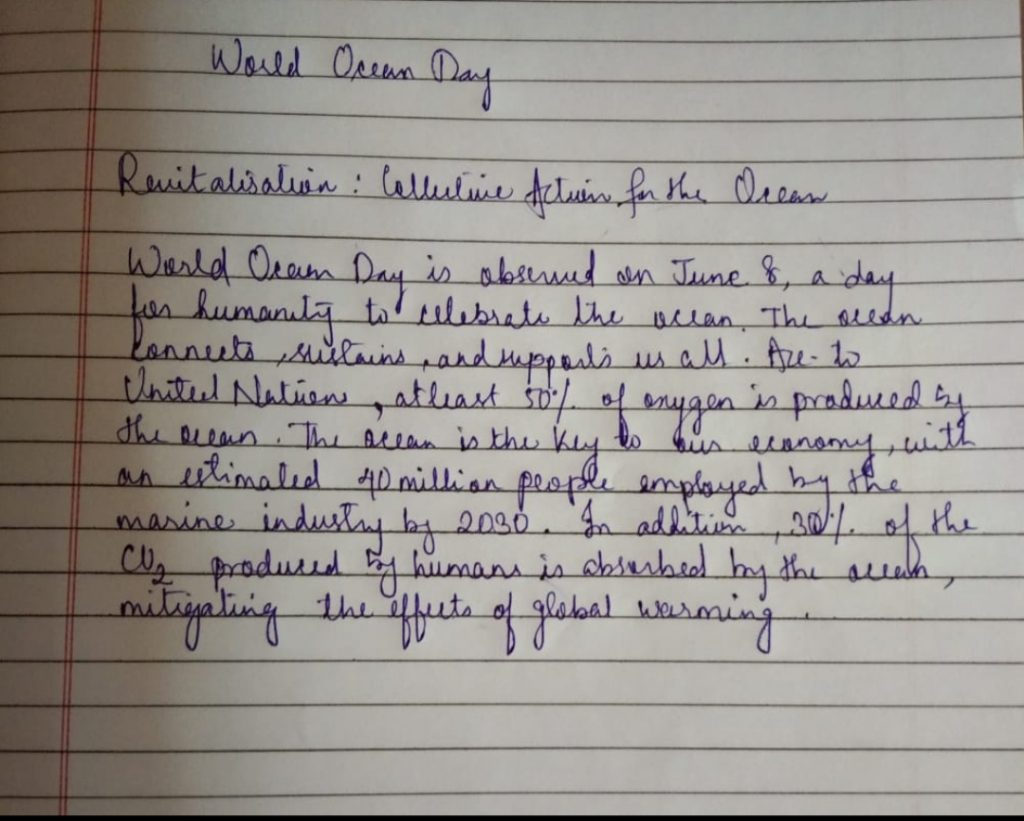 World Ocean Day
Revitalisation : Collective Action for the Ocean
World Ocean Day is observed on June 8, a day
for humanity to celebrate the ocean. The ocean
connects, sustains, and supports us all. Acc. to
United Nations, atleast 50% of oxygen is produced by
the ocean. The ocean is the key to our economy, with
an estimated 40 million people employed by the
marine industry by 2030. In addition, 30% of the
CO₂ produced by humans is absorbed by the ocean,
mitigating the effects of global warming.